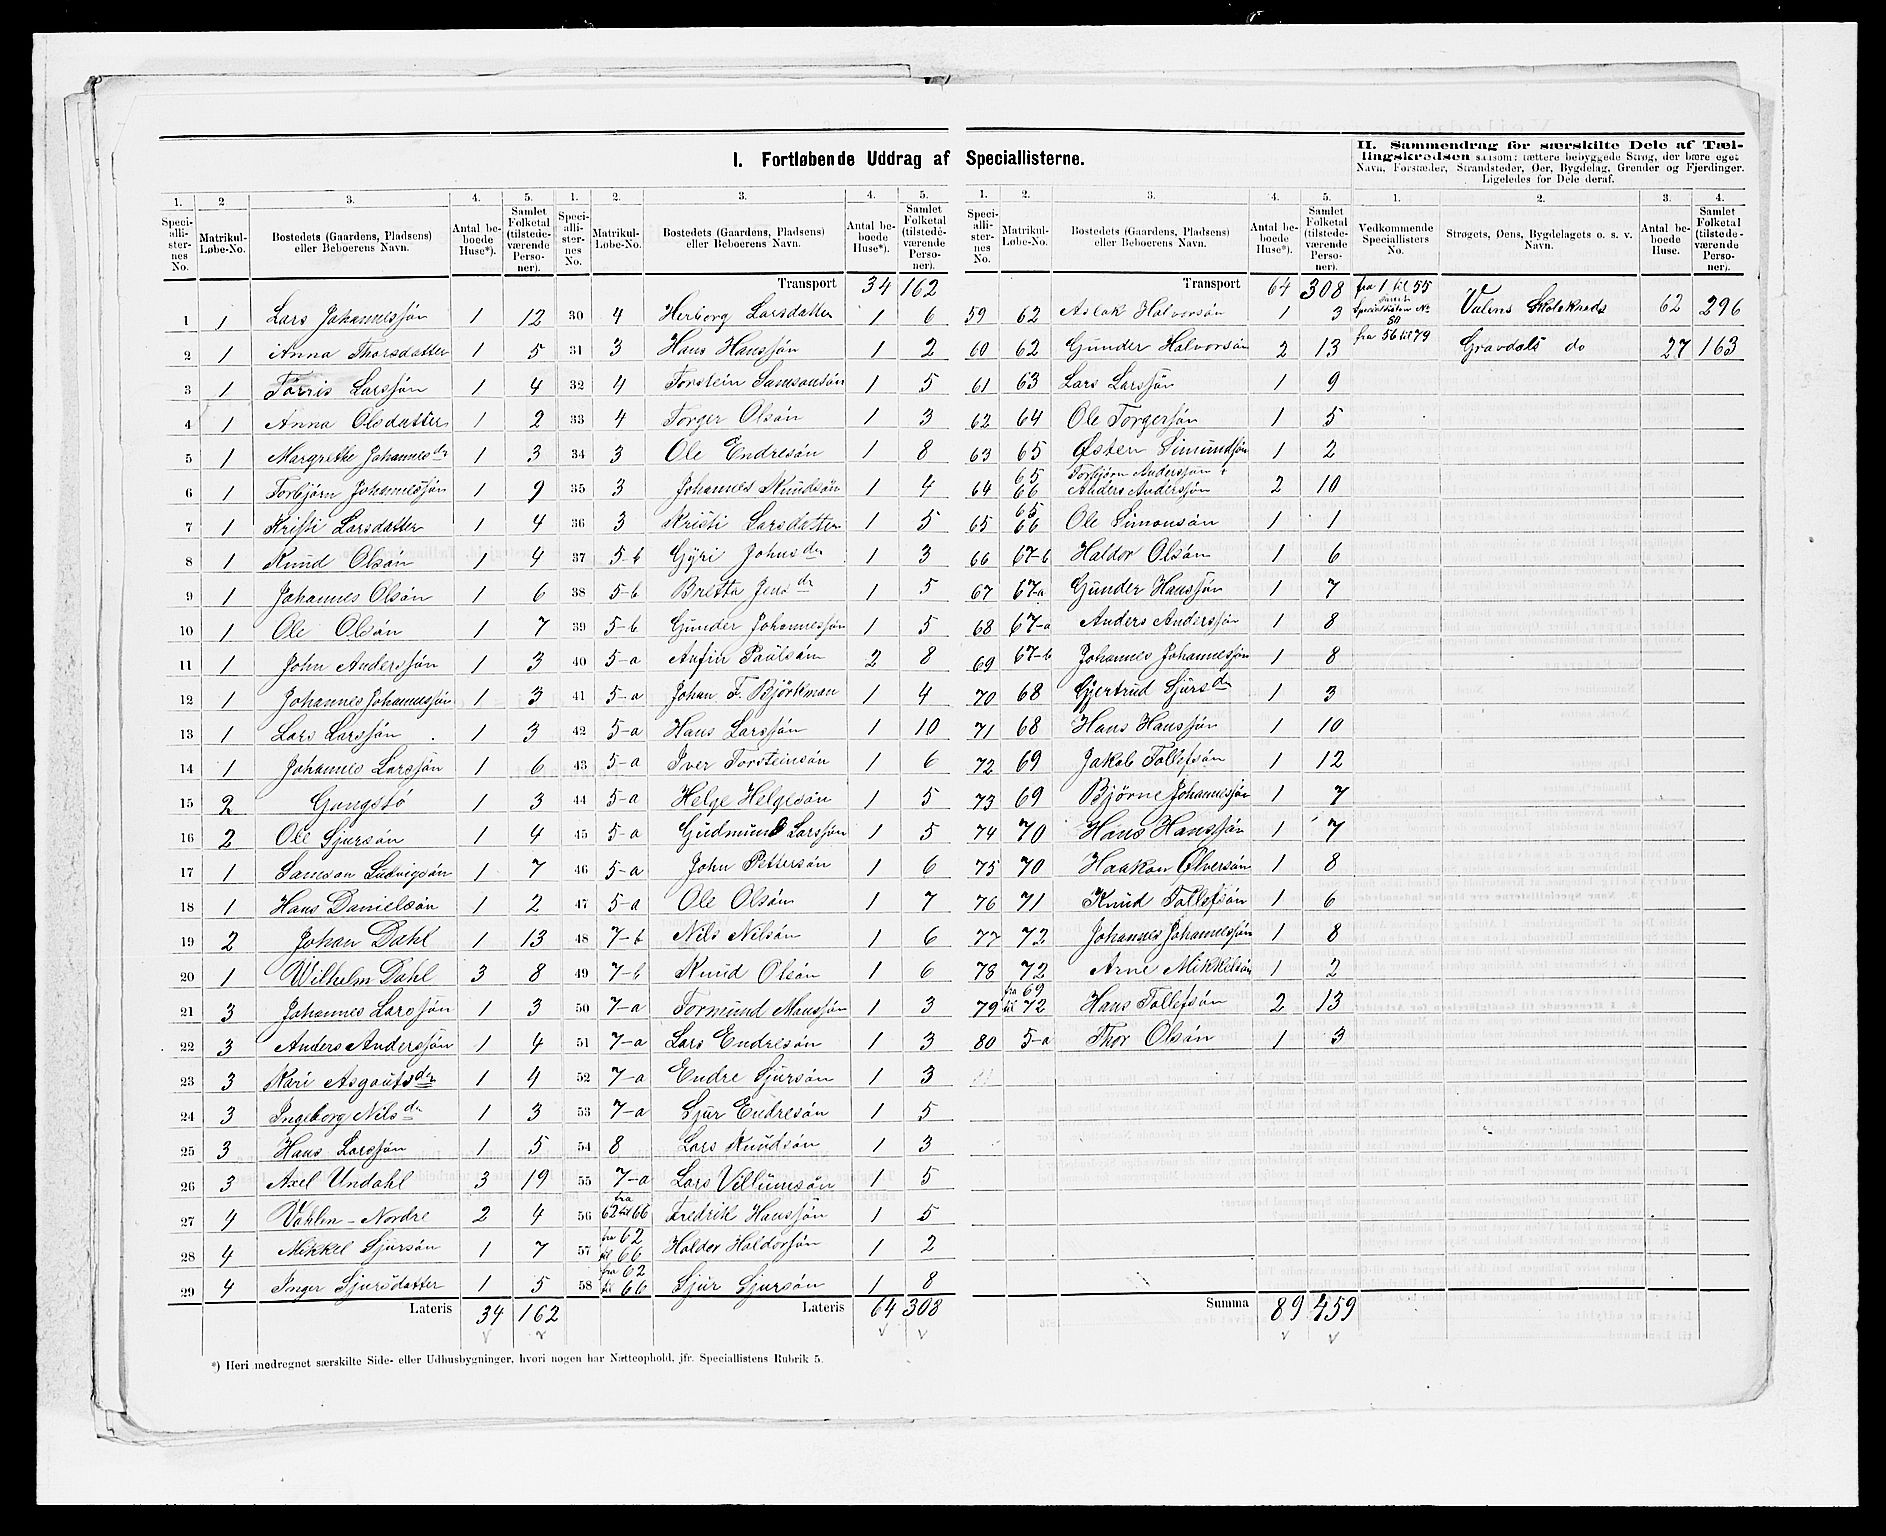 I. Fortløbende Uddrag af Speciallisterne.
II. Sammendrag for særskilte Dele af Tællingskredsen saasom: tættere bebyggede Strøg, der bære eget Navn, Forstæder, Strandsteder, Øer, Bygdelag, Grender og Fjerdinger. Ligeledes for Dele deraf.
1. 2 3. 4. 5. 1. 2. 3. 4. 5. 1. 2. 3. 4. 5. 1. 2. 3. 4.
Speciallisternes No. Matrikul-Løbe-No. Bostedets (Gaardens, Pladsens) eller Beboerens Navn. Antal beboede Huse*). Samlet Folketal (tilstedeværende Personer).
Speciallisternes No. Matrikul-Løbe-No. Bostedets (Gaardens, Pladsens) eller Beboerens Navn. Antal beboede Huse*). Samlet Folketal (tilstedeværende Personer).
Speciallisternes No. Matrikul-Løbe-No. Bostedets (Gaardens, Pladsens) eller Beboerens Navn. Antal beboede Huse*). Samlet Folketal (tilstedeværende Personer).
Vedkommende Speciallisters No. Strøgets, Øens, Bygdelagets o. s. v. Navn. Antal beboede Huse. Samlet Folketal (tilstedeværende Personer).
1 1 Lars Johannessøn 1 12
2 1 Anna Thorsdatter 1 5
3 1 Tørris Larssøn 1 4
4 1 Anna Olsdatter 1 2
5 1 Margrethe Johannesdr 1 3
6 1 Torbjørn Johannessøn 1 9
7 1 Kristi Larsdatter 1 4
8 1 Knud Olsøn 1 4
9 1 Johannes Olsøn 1 6
10 1 Ole Olsøn 1 7
11 1 John Anderssøn 1 3
12 1 Johannes Johannessøn 1 3
13 1 Lars Larssøn 1 3
14 1 Johannes Larssøn 1 6
15 2 Gangstø 1 3
16 2 Ole Sjursøn 1 4
17 1 Samson Ludvigsøn 1 7
18 1 Hans Danielsøn 1 2
19 2 Johan Dahl 1 13
20 1 Wilhelm Dahl 3 8
21 3 Johannes Larssøn 1 3
22 3 Anders Anderssøn 1 4
23 3 Kari Asgautsdr 1 4
24 3 Ingeborg Nilsdr 1 3
25 3 Hans Larssøn 1 5
26 3 Axel Undahl 3 19
27 4 Vahlen-Nordre 2 4
28 4 Mikkel Sjursøn 1 7
29 4 Inger Sjursdatter 1 5
Lateris 34 162
Transport 34 162
30 4 Herborg Larsdatter 1 6
31 3 Hans Hanssøn 1 2
32 4 Torstein Samsonsøn 1 5
33 4 Torger Olsøn 1 3
34 3 Ole Endresøn 1 8
35 3 Johannes Knudsøn 1 4
36 3 Kristi Larsdatter 1 5
37 5-b Gyri Johnsdr 1 3
38 5-b Britta Jensdr 1 5
39 5-b Gunder Johannessøn 1 5
40 5-a Anfin Paulsøn 2 8
41 5-a Johan F. Björkman 1 4
42 5-a Hans Larssøn 1 10
43 5-a Iver Torsteinsøn 1 6
44 5-a Helge Helgesøn 1 5
45 5-a Gudmund Larssøn 1 5
46 5-a John Pettersøn 1 6
47 5-a Ole Olsøn 1 7
48 7-b Nils Nilsøn 1 6
49 7-b Knud Olsøn 1 6
50 7-a Tormund Manssøn 1 3
51 7-a Lars Endresøn 1 3
52 7-a Endre Sjursøn 1 3
53 7-a Sjur Endresøn 1 5
54 8 Lars Knudsøn 1 3
55 7-a Lars Villumsøn 1 5
56 fra 62 til 66 Fredrik Hanssøn 1 5
57 fra 62 til 66 Haldor Haldorsøn 1 2
58 fra 62 til 66 Sjur Sjursøn 1 8
Lateris 64 308
Transport 64 308
59 62 Aslak Halvorsøn 1 3
60 62 Gunder Halvorsøn 2 13
61 63 Lars Larssøn 1 9
62 64 Ole Torgersøn 1 5
63 65 Østen Simundsøn 1 2
64 65 66 Torbjørn Anderssøn Anders Anderssøn 2 10
65 65 66 Ole Simonsøn 1 1
66 67-b Haldor Olsøn 1 6
67 67-a Gunder Hanssøn 1 7
68 67-a Anders Anderssøn 1 8
69 67-b Johannes Johannessøn 1 8
70 68 Gjertrud Sjursdr 1 3
71 68 Hans Hanssøn 1 10
72 69 Jakob Tollefsøn 1 12
73 69 Bjørne Johannessøn 1 7
74 70 Hans Hanssøn 1 7
75 70 Haakon Ølversøn 1 8
76 71 Knud Tollefsøn 1 6
77 72 Johannes Johannessøn 1 8
78 72 Arne Mikkelsøn 1 2
79 fra 69 til 72 Hans Tollefsøn 2 13
80 5-a Thor Olsøn 1 3
Summa 89 459
fra 1 til 55 samt Speciallisten No 80 Valens Skolekreds 62 296
fra 56 til 79 Gravdals do 27 163
*) Heri medregnet særskilte Side- eller Udhusbygninger, hvori nogen har Natteophold, jfr. Speciallistens Rubrik 5.